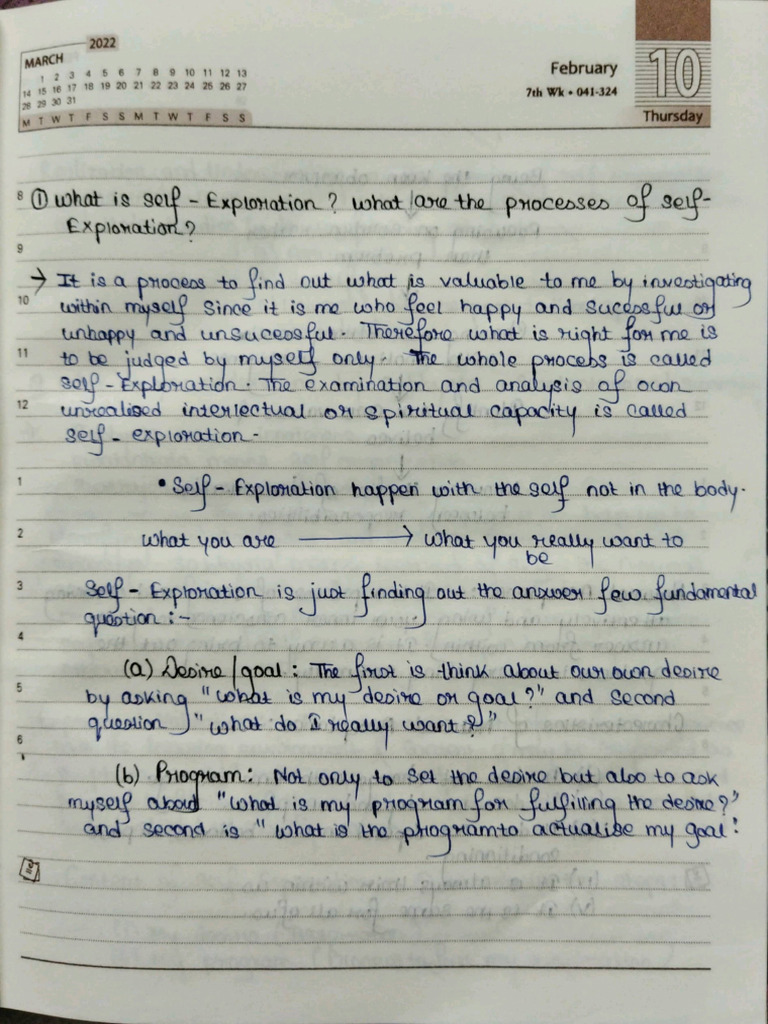 2022
MARCH
1 2 3 4 5 6 7 8 9 10 11 12 13
14 15 16 17 18 19 20 21 22 23 24 25 26 27
28 29 30 31
M T W T F S S M T W T F S S
February
7th Wk • 041-324
10
Thursday
8 ① What is self - Exploration? What are the processes of self-
Exploration?
9
→ It is a process to find out what is valuable to me by investigating
10 within myself Since it is me who feel happy and sucessful or
unhappy and unsucessful. Therefore what is right for me is
11 to be judged by myself only. The whole process is called
self - Exploration. The examination and analysis of own
12 unrealised interlectual or spiritual capacity is called
self - exploration.
1 • Self - Exploration happen with the self not in the body.
2 What you are → what you really want to
be
3 Self - Exploration is just finding out the answer few fundamental
question :-
4
(a) Desire/goal : The first is think about our own desire
5 by asking "What is my desire or goal?" and second
question "What do I really want?"
6
(b) Program: Not only to set the desire but also to ask
myself about "What is my program for fulfilling the desire?"
and second is "what is the program to actualise my goal!